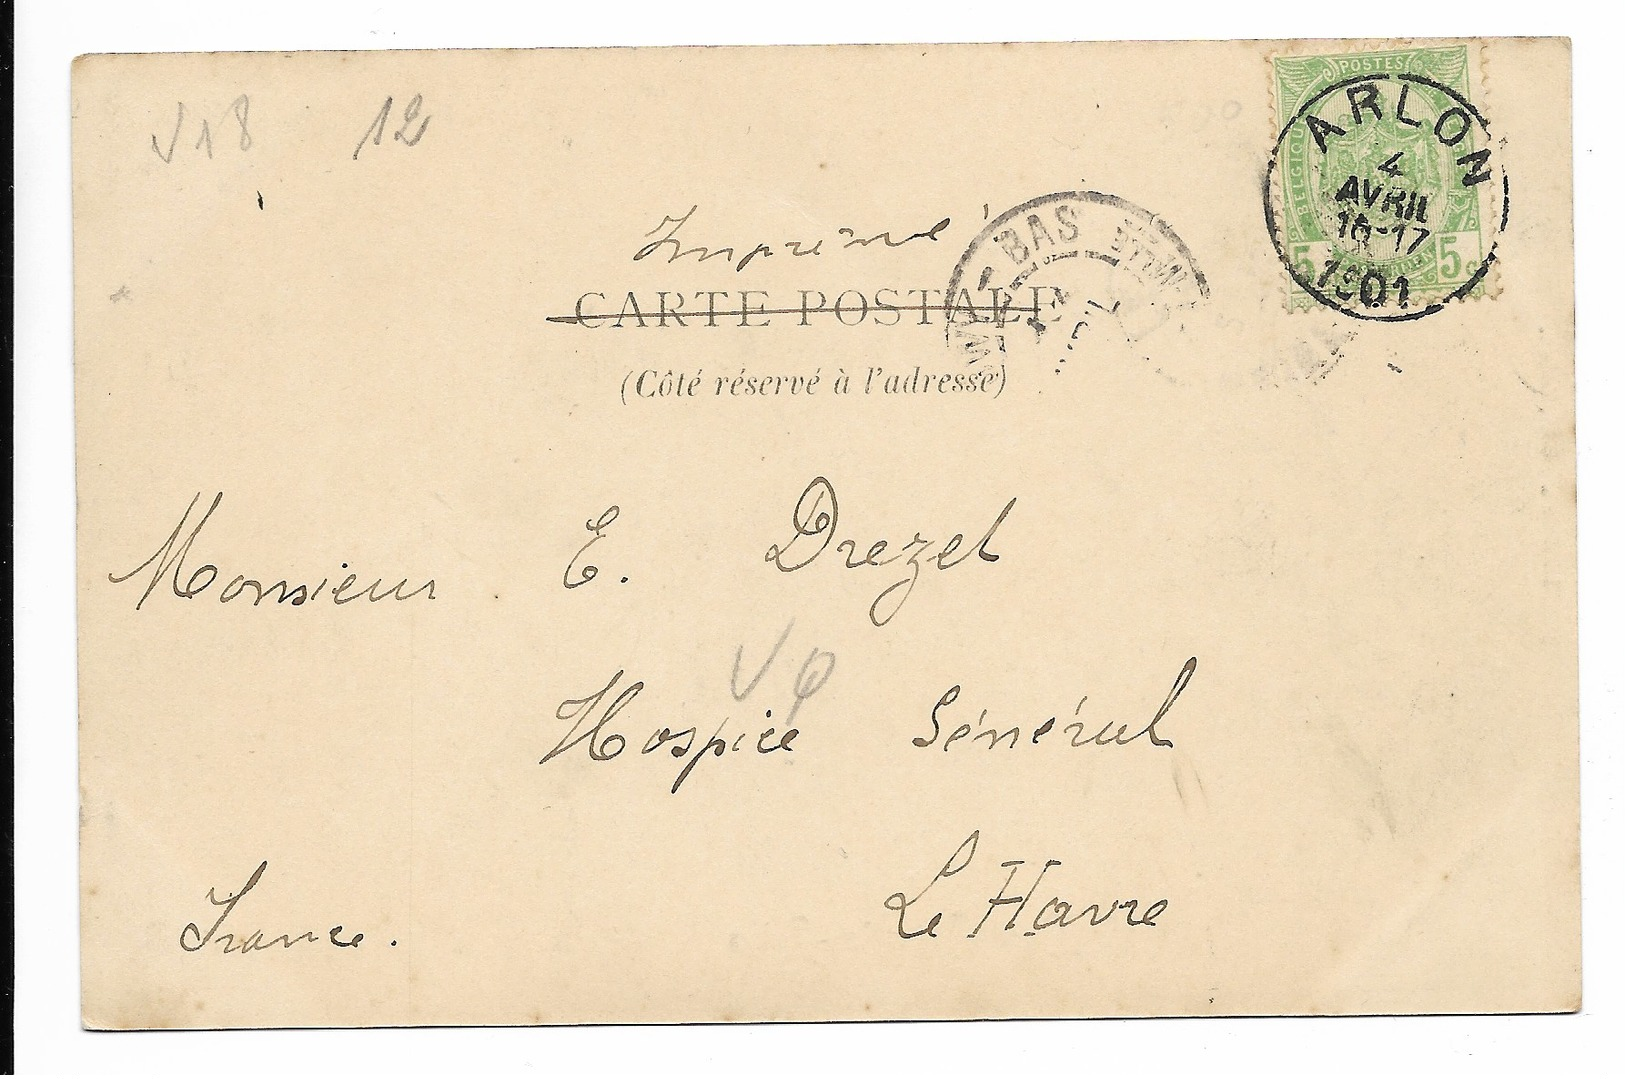 V18 12
POSTES
BELGIQUE
5 5c
ARLON
4
AVRIL
16-17
1901
BAS
Imprimé
CARTE POSTALE
(Côté réservé à l'adresse)
Monsieur E. Drezet
Hospice Général
Le Havre
France.